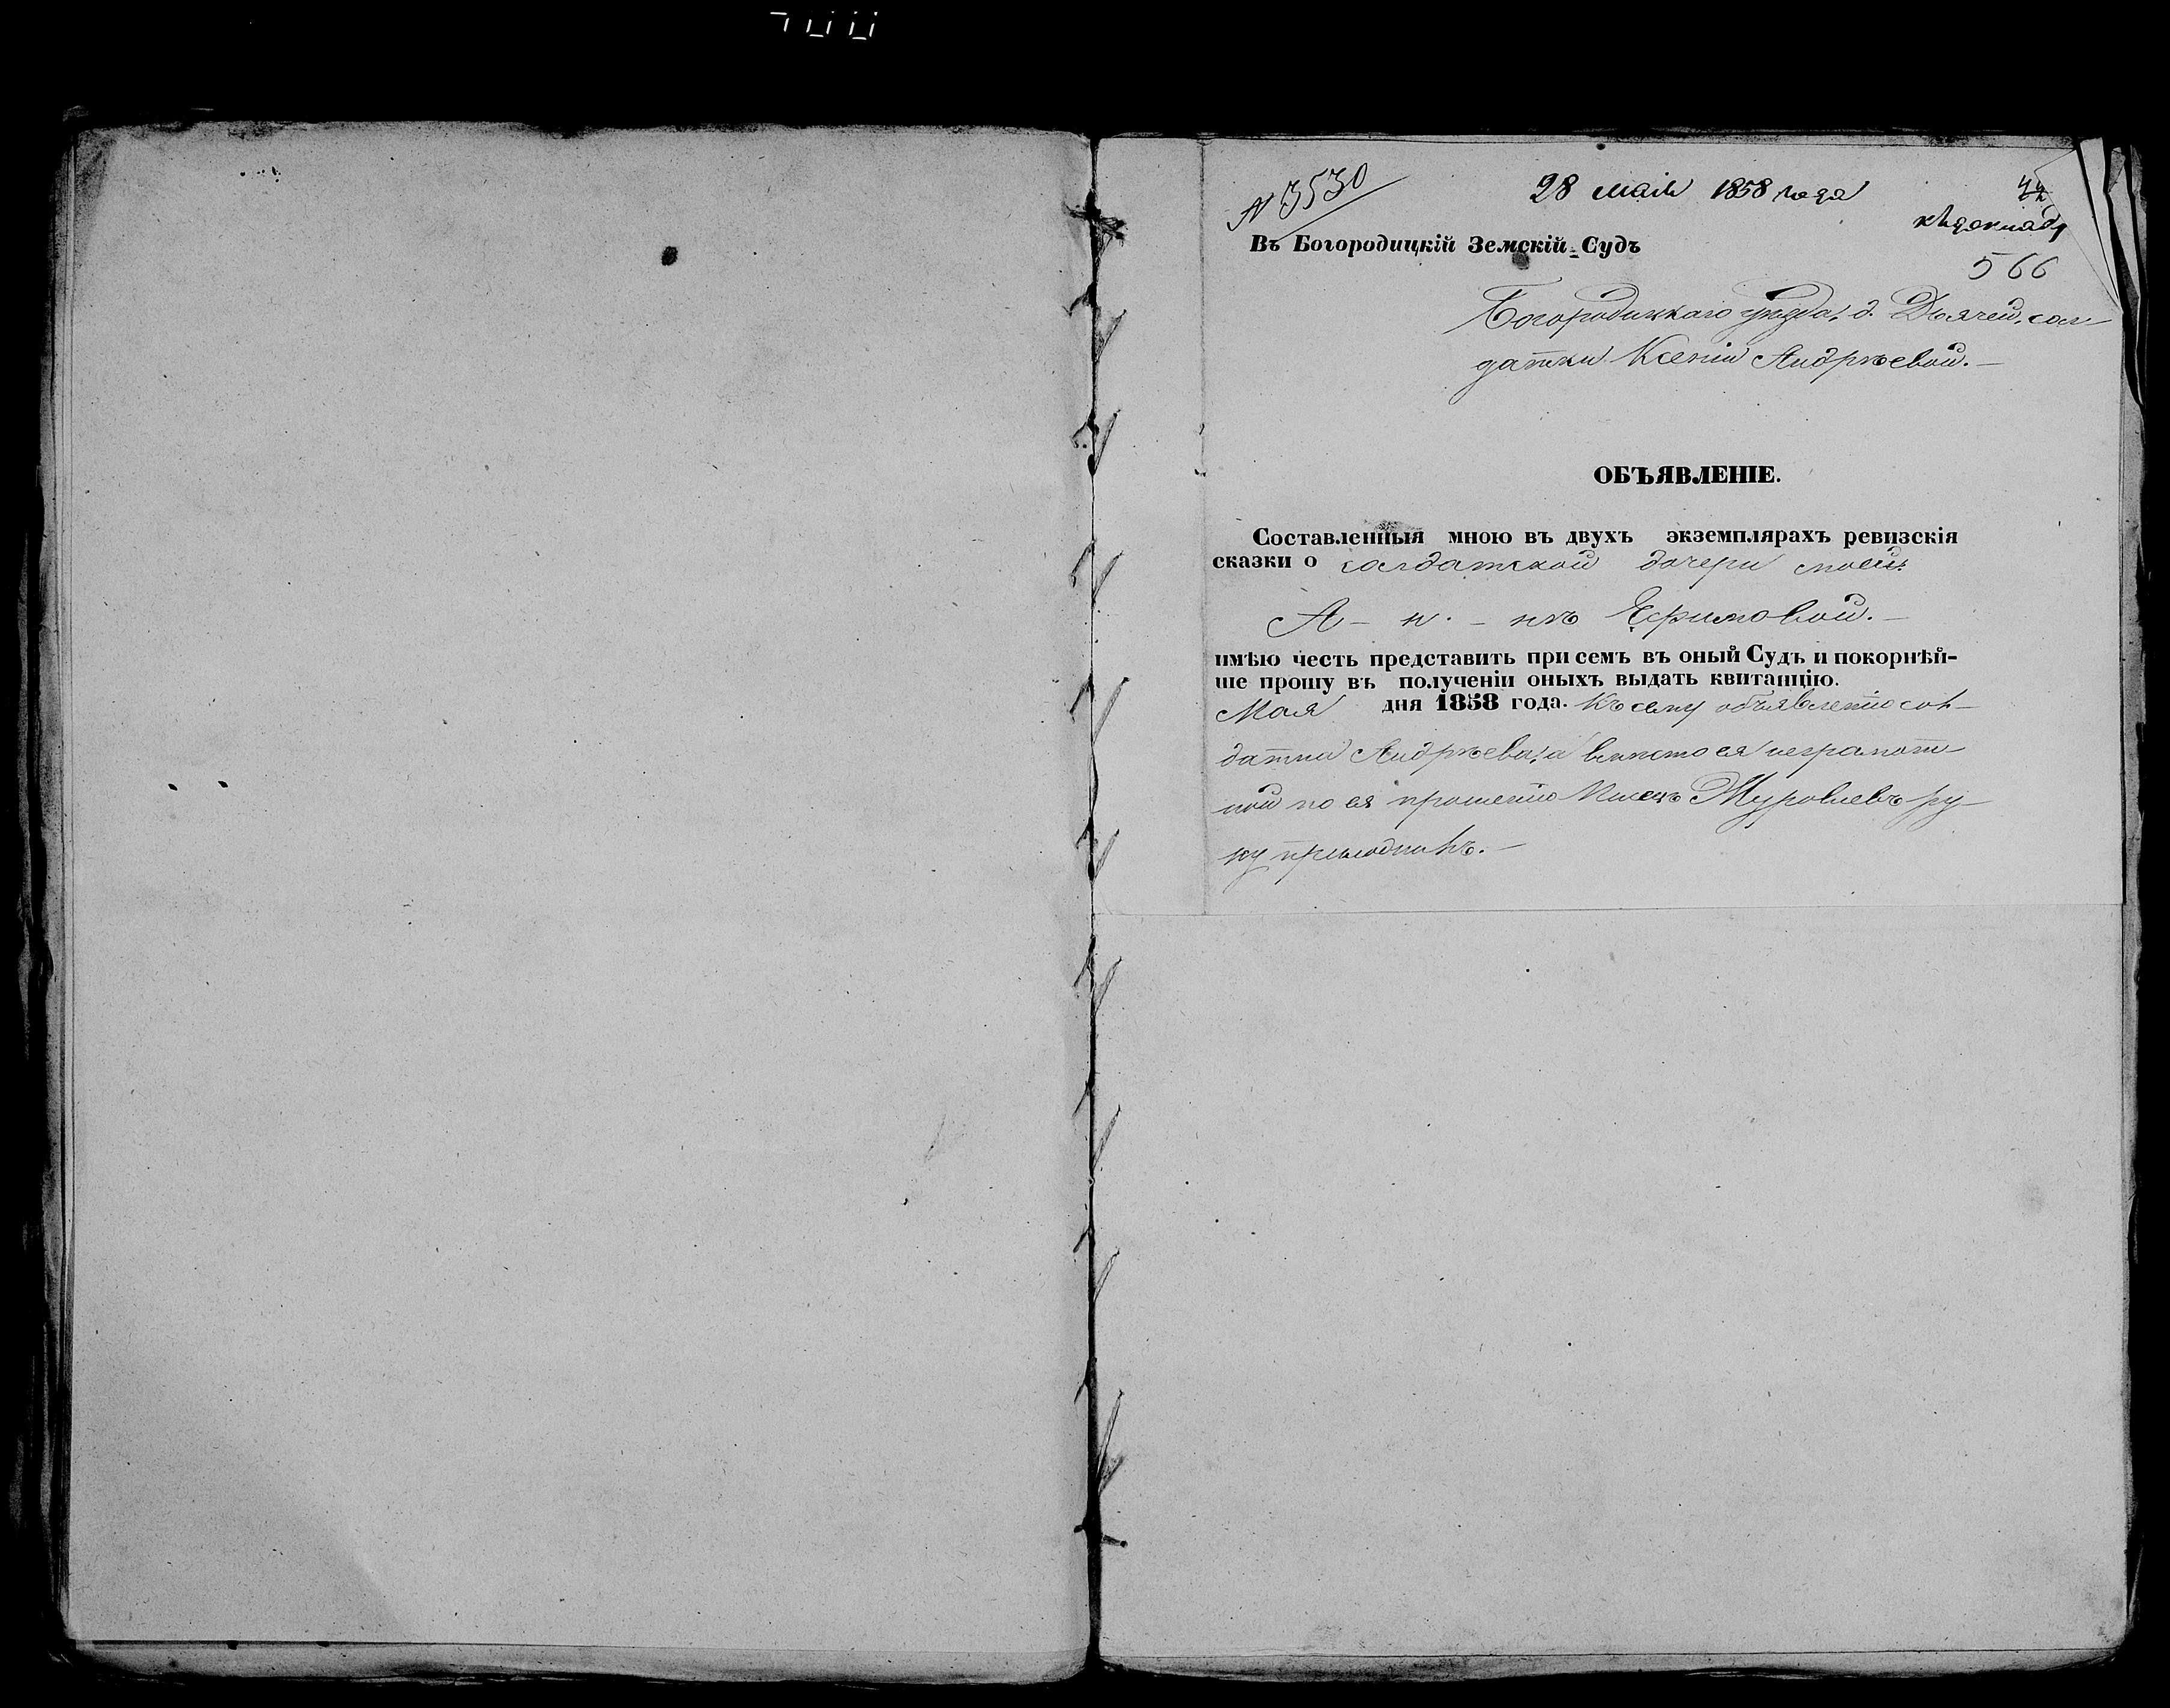 N 3530
28 маія 1858 года
къ докладу
566
Въ Богородицкій Земскій Судъ
Богородицкаго уѣзда, д. Дьячей, сол-
датки Ксеніи Андрѣевой. —
ОБЪЯВЛЕНІЕ.
Составленныя мною въ двухъ экземплярахъ ревизскія
сказки о солдатской дочери моей
А - н. - нѣ Ефимовой. —
имѣю честь представить при семъ въ оный Судъ и покорнѣй-
ше прошу въ полученіи оныхъ выдать квитанцію.
Мая дня 1858 года. Къ сему объявленію сол-
датка Андрѣева, а вмѣсто ея неграмот-
ной по ея прошенію Писецъ Журовлевъ ру-
ку приложилъ. —